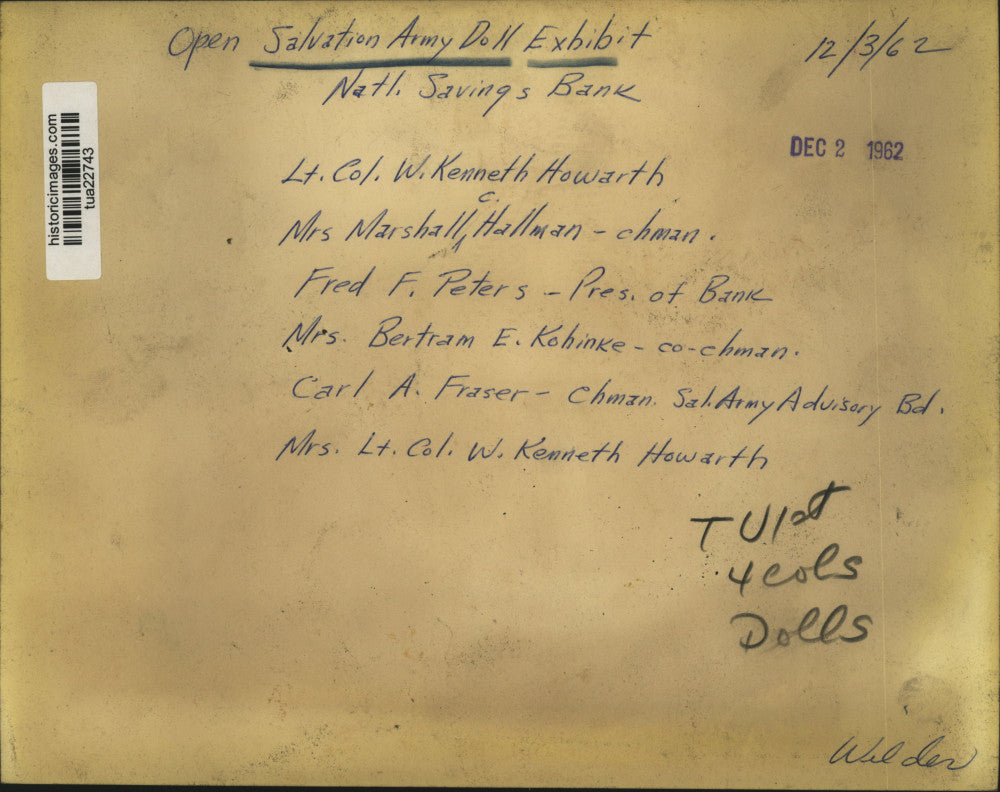 Open Salvation Army Doll Exhibit
12/3/62
Natl. Savings Bank
DEC 2 1962
historicimages.com
tua22743
Lt. Col. W. Kenneth Howarth
Mrs Marshall C. Hallman - chman.
Fred F. Peters - Pres. of Bank
Mrs. Bertram E. Kohinke - co-chman.
Carl A. Fraser - Chman. Sal. Army Advisory Bd.
Mrs. Lt. Col. W. Kenneth Howarth
TU 1st
4 cols
Dolls
Wilder